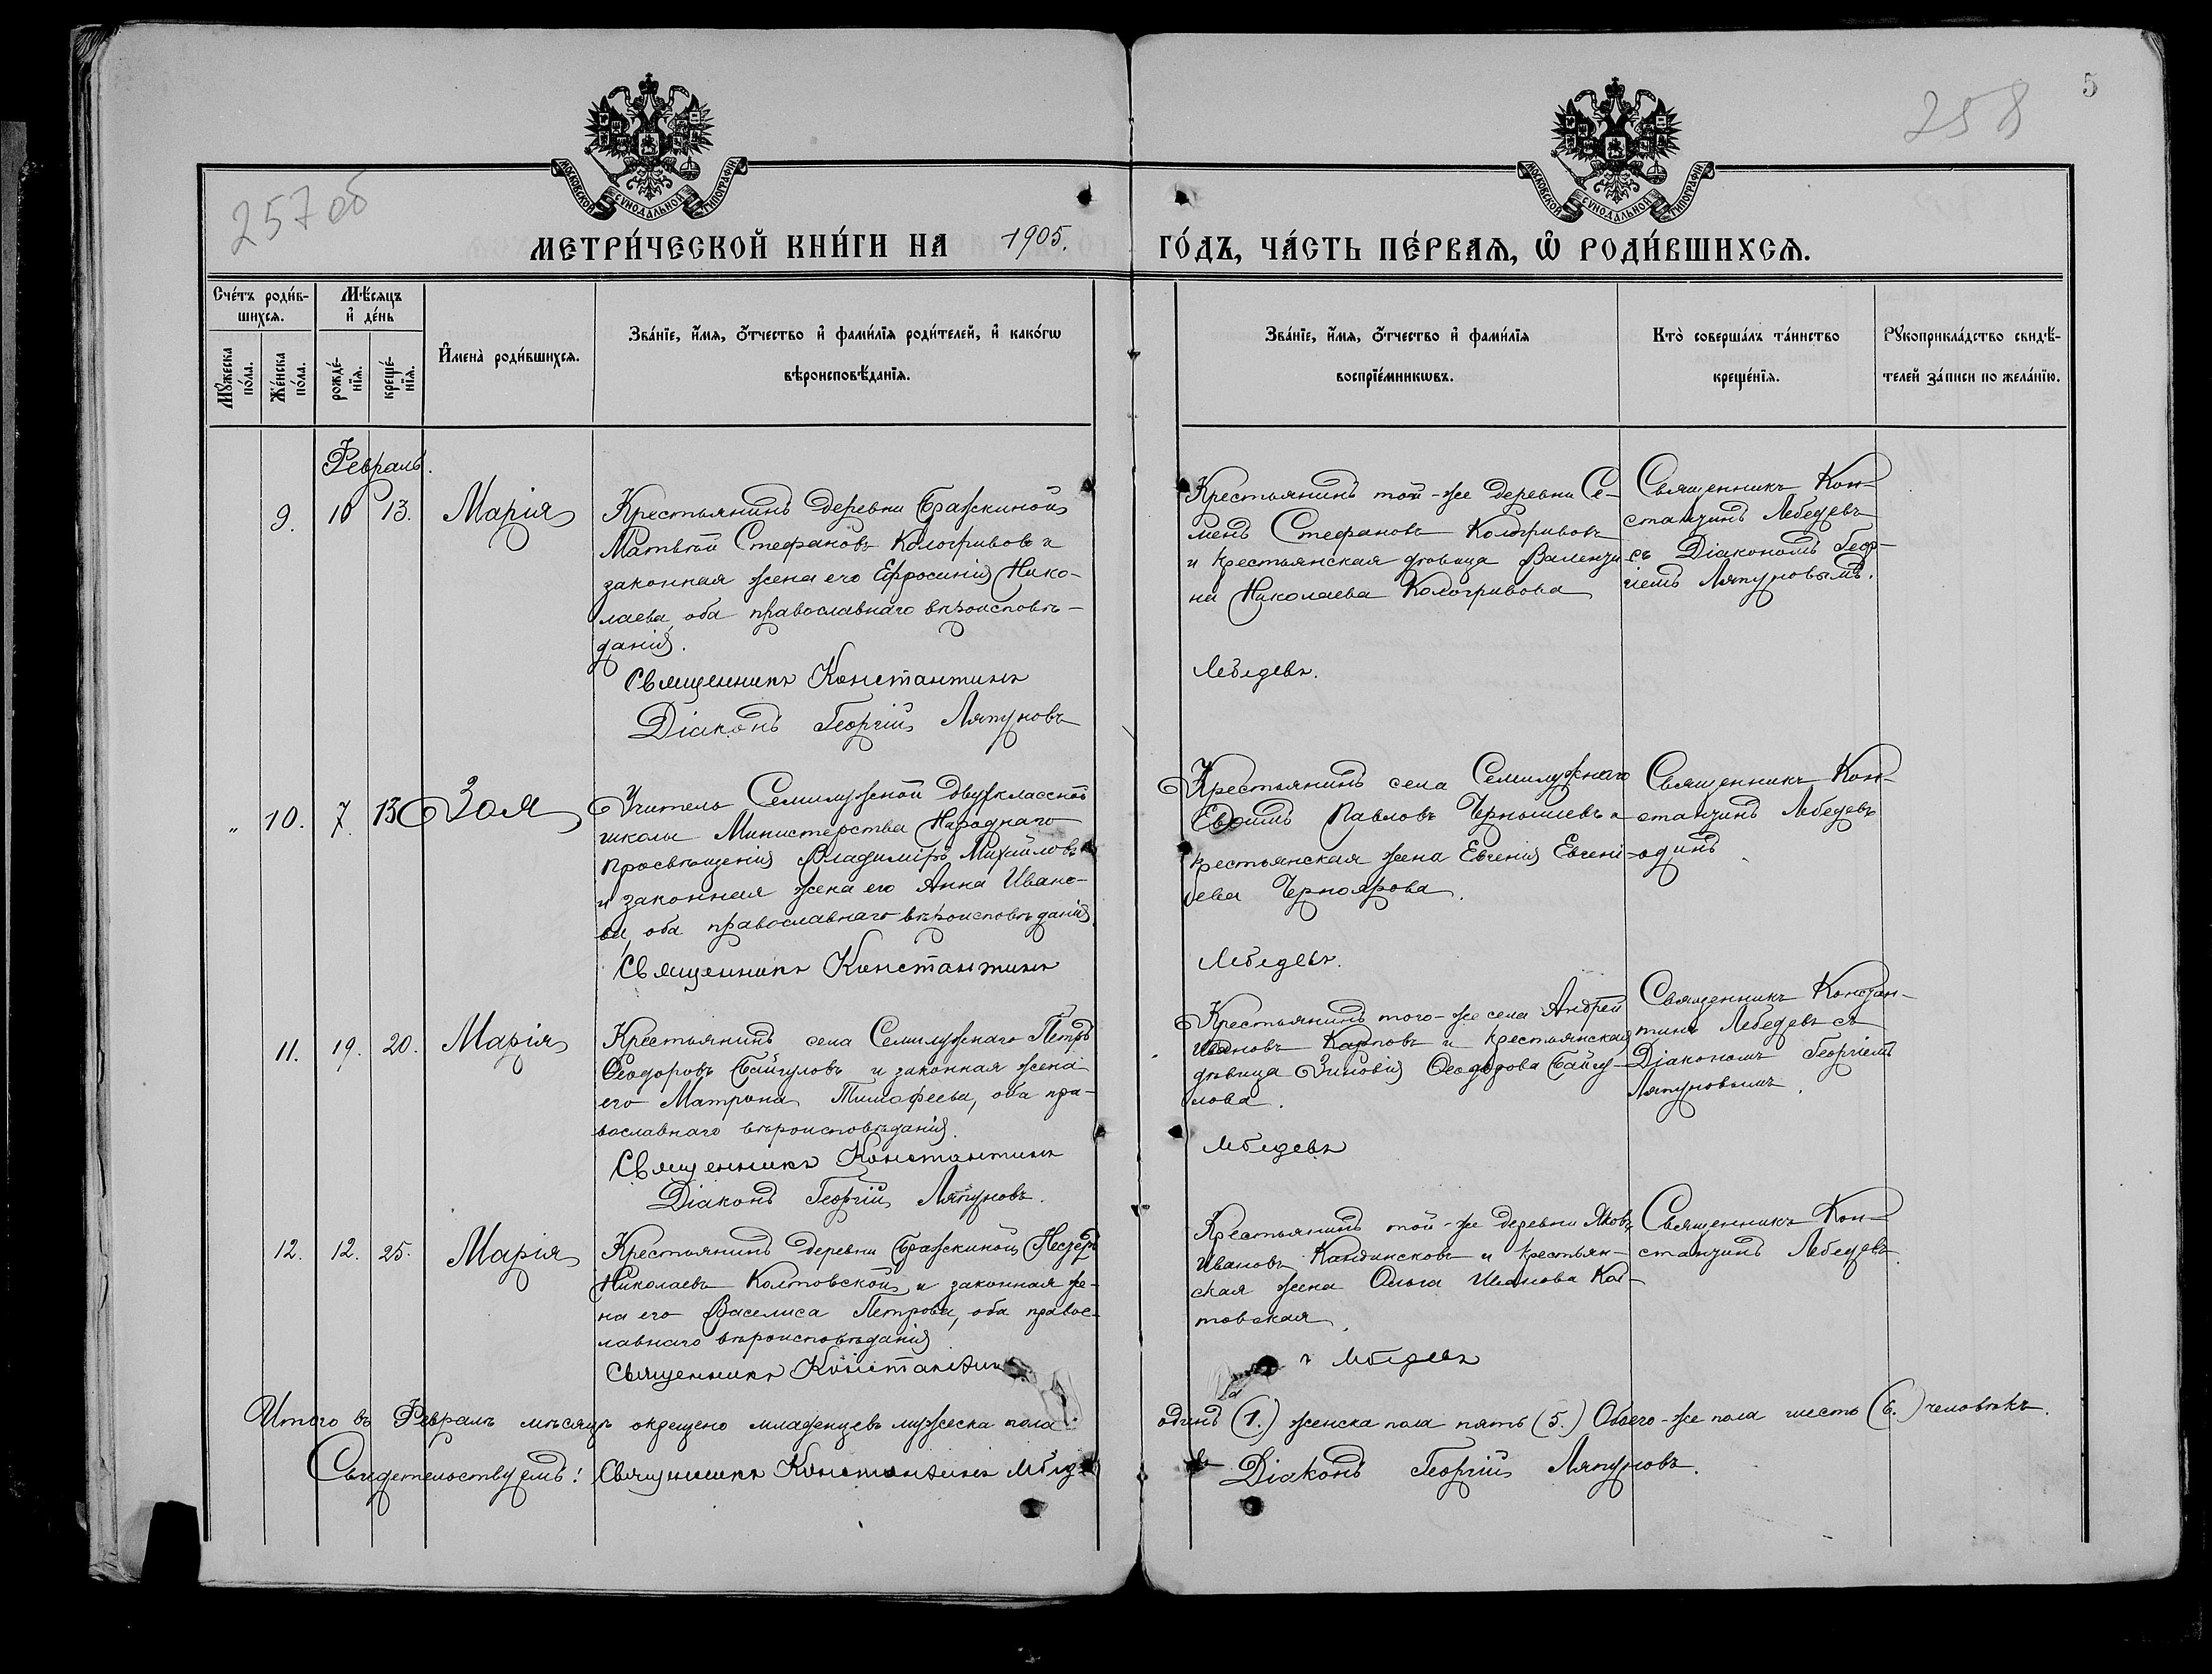 5
258
257 об
МОСКОВСКОЙ СѴНОДАЛЬНОЙ ТИПОГРАФІИ
МОСКОВСКОЙ СѴНОДАЛЬНОЙ ТИПОГРАФІИ
МЕТРИ́ЧЕСКОЙ КНИ́ГИ НА 1905. ГО́ДЪ, ЧА́СТЬ ПЕ́РВАѦ, Ѡ҆ РОДИ́ВШИХСѦ.
Сче́тъ роди́в-
шихсѧ.
Мѣ́сѧцъ
и҆ де́нь
Мꙋ́жеска по́ла.
Же́нска по́ла.
рожде́-
нїѧ.
креще́-
нїѧ.
И҆мена̀ роди́вшихсѧ.
Зва́нїе, и҆́мѧ, о҆́тчество и҆ фами́лїѧ роди́телей, и҆ како́гѡ
вѣроисповѣ́данїѧ.
Зва́нїе, и҆́мѧ, о҆́тчество и҆ фами́лїѧ
воспрїе́мникѡвъ.
Кто̀ соверша́лъ та́инство
креще́нїѧ.
Рꙋкоприкла́дство свидѣ́-
телей за́писи по жела́нїю.
Февраль.
9. 10 13. Марія
Крестьянинъ деревни Бражкиной
Матвѣй Стефановъ Кологривовъ и
законная жена его Ефросинія Нико-
лаева, оба православнаго вѣроисповѣ-
данія.
Священникъ Константинъ
Діаконъ Георгій Ляпуновъ
Крестьянинъ той-же деревни Се-
менъ Стефановъ Кологривовъ
и крестьянская дѣвица Валенти
на Николаева Кологривова
Лебедевъ.
Священникъ Кон-
стантинъ Лебедевъ
съ Діакономъ Геор-
гіемъ Ляпуновымъ.
„ 10. 7. 13 Зоя
Учитель Семилужной двухклассной
школы Министерства Народнаго
Просвѣщенія Владиміръ Михайловъ
и законная жена его Анна Ивано-
ва, оба православнаго вѣроисповѣданія.
Священникъ Константинъ
Крестьянинъ села Семилужнаго
Евфимъ Павловъ Чернышевъ и
крестьянская жена Евгенія Евгені-
ева Черноярова.
Лебедевъ.
Священникъ Кон-
стантинъ Лебедевъ
одинъ
11. 19. 20. Марія
Крестьянинъ села Семилужнаго Петръ
Ѳеодоровъ Байгуловъ и законная жена
его Матрона Тимофеева, оба пра-
вославнаго вѣроисповѣданія.
Священникъ Константинъ
Діаконъ Георгій Ляпуновъ.
Крестьянинъ того-же села Андрей
Ивановъ Карповъ и крестьянская
дѣвица Зиновія Ѳеодорова Байгу-
лова.
Лебедевъ
Священникъ Констан-
тинъ Лебедевъ съ
Діакономъ Георгіемъ
Ляпуновымъ.
12. 12. 25. Марія
Крестьянинъ деревни Бражкиной Нестеръ
Николаевъ Колтовской и законная же-
на его Василиса Петрова, оба право-
славнаго вѣроисповѣданія
Священникъ Константинъ
Крестьянинъ той-же деревни Яковъ
Ивановъ Кандинсковъ и крестьян-
ская жена Ольга Иванова Кол-
товская.
Лебедевъ
Священникъ Кон-
стантинъ Лебедевъ.
Итого въ Февралѣ мѣсяцѣ окрещено младенцевъ мужеска пола одинъ (1.) женска пола пять (5.) Обоего-же пола шесть (6.) человѣкъ.
Свидетельствуемъ: Священникъ Константинъ Лебедевъ Діаконъ Георгій Ляпуновъ.